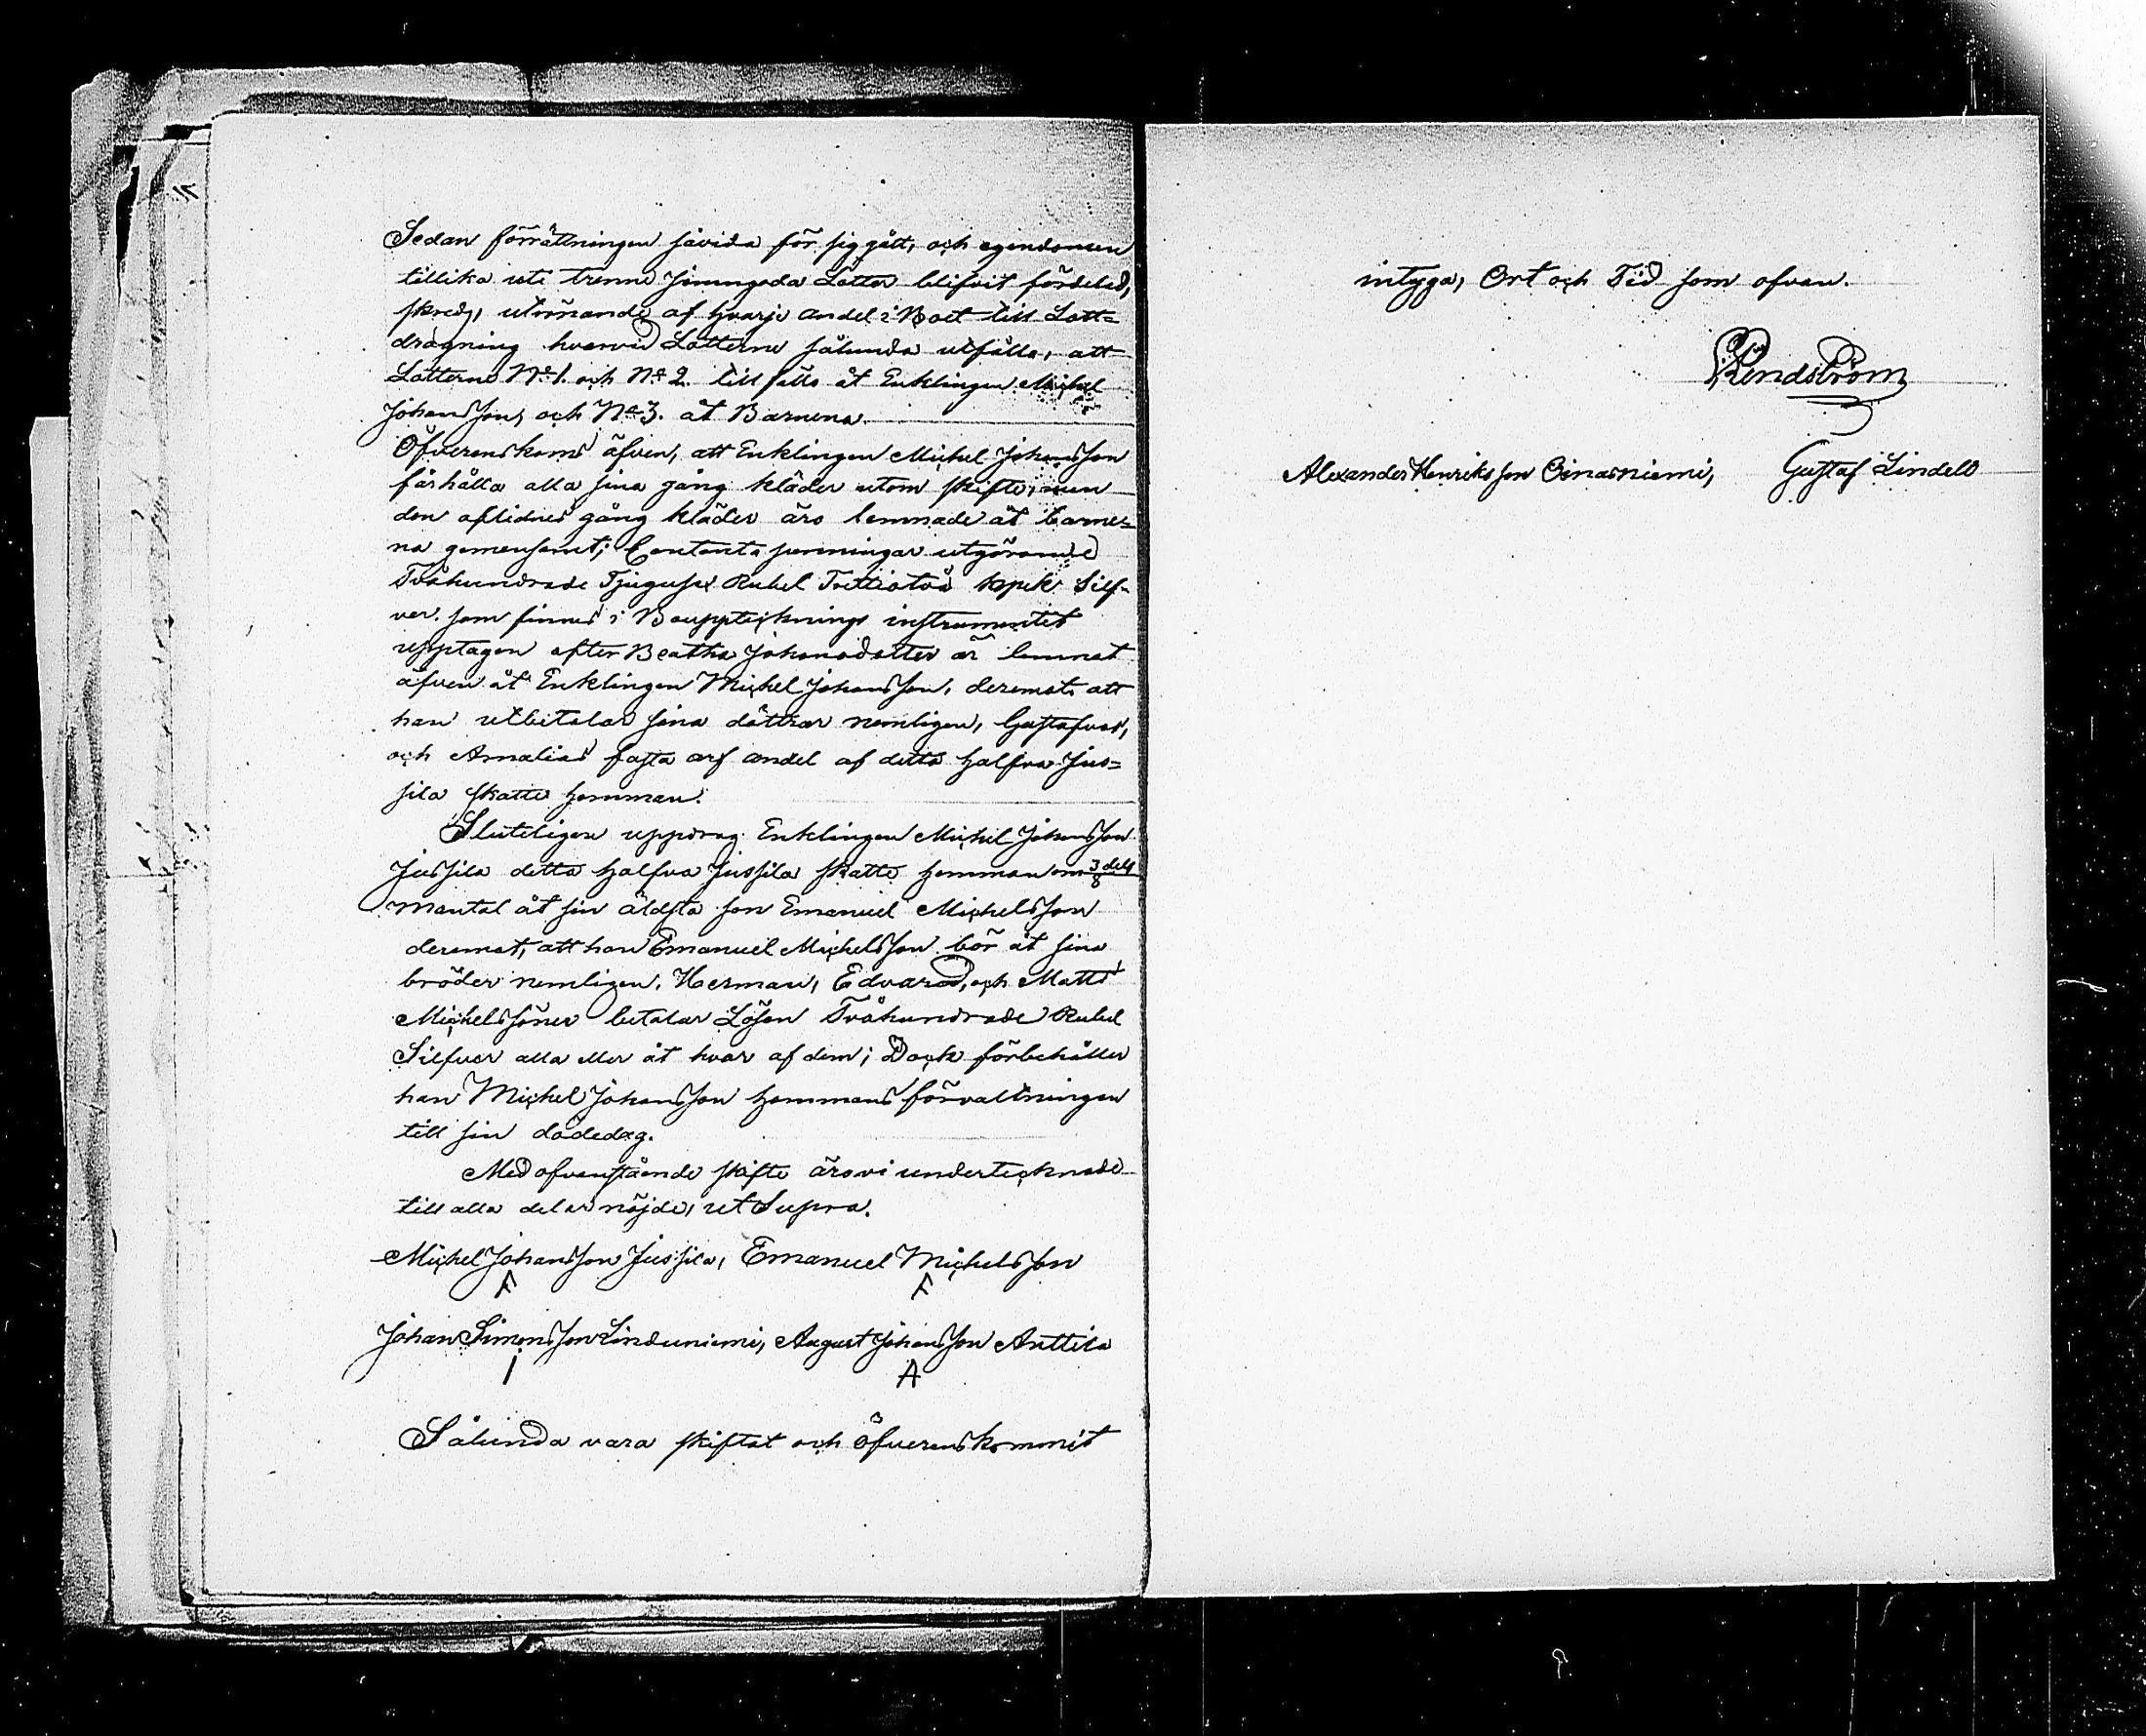 Sedan förrättningen såvida för sig gått, och egendomen
tillika uti trenne jemngoda Lotter blifvit fördeled,
skreds, utrönande af hvarje andel i Boet till Lott=
dragning hvarvid Lotterne sålunda utfälla, att
Lotterne No 1. och No 2. till fälls åt Enklingen Michel
Johansson, och No 3. åt Barnena.
Öfverenskoms äfven, att Enklingen Michel Johansson
får hålla alla sina gång kläder utom skifte, men
den aflidnes gång kläder äro lemnade åt barne=
na gemensamt; Contanta penningar utgörande
Tvåhundrade Tjugusex Rubel Trettiotvå kopek Silf=
ver. som finnes i Boupptecknings instrumentet
upptagen efter Beatha Johansdotter är lemnat
äfven åt Enklingen Michel Johansson, deremot att
han utbetalar sina döttrar nemligen, Gustafvas,
och Amalias fasta arf andel af detta halfva Jus=
sila skatte hemman.
Sluteligen uppdrag Enklingen Michel Johansson
Jussila detta halfva Jussila skatte hemman om 3/8 dels
mantal åt sin äldsta son Emanuel Michelsson
deremot, att han Emanuel Michelsson bör åt sina
bröder nemligen, Herman, Edvard, och Matts
Michelssöner betalar Lösen Tvåhundrade Rubel
Silfver alla eller åt hvar af dem; Dock förbehåller
han Michel Johansson hemmans förvaltningen
till sin dödedag.
Med ofvanstående skifte äro vi undertecknade
till alla delar nöjde, ut Supra.
Michel Johansson Jussila, Emanuel Michelsson
F F
Johan Simonsson Linduniemi, August Johansson Anttila
I A
Sålunda vara skiftat och öfverenskommit
intyga, Ort och Tid som ofvan.
Rendström
Alexander Henriksson Oinasniemi, Gustaf Lindell